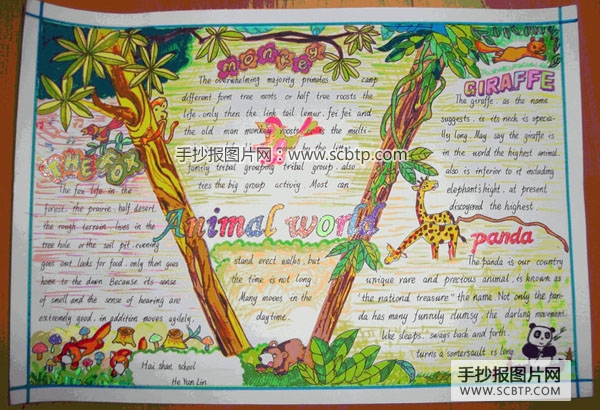 monkey
The overwhelming majority primates camp
different form tree nests or half tree roosts the
life. only then the link tail lemur. fei fei and
the old man monkey roosts the multi-
by the line
family tribal grouping tribal group. also
ties the big group activity Most can
stand erect walks, but
the time is not long
Many moves in the
daytime.
THE FOX
The fox life in the
forest. the prairie. half desert.
the rough terrain lives in the
tree hole or the soil pit. evening
goes out looks for food. only then goes
home to the dawn Because its sense
of smell and the sense of hearing are
extremely good. in addition moves agilely.
Hai shan school
He Yun Lin
Animal world
GIRAFFE
The giraffe as the name
suggests. is its neck is specia-
lly long. May say the giraffe is
in the world the highest animal.
also is inferior to it including
elephant's hight. at present
discovered the highest.
panda
The panda is our country
unique rare and precious animal. is known as
"the national treasure" the name Not only the pan-
da has many funnily clumsy. the darling movement.
like sleeps. sways back and forth.
turns a somersault is long
手抄报图片网:www.scbtp.com
手抄报图片网
WWW.SCBTP.COM